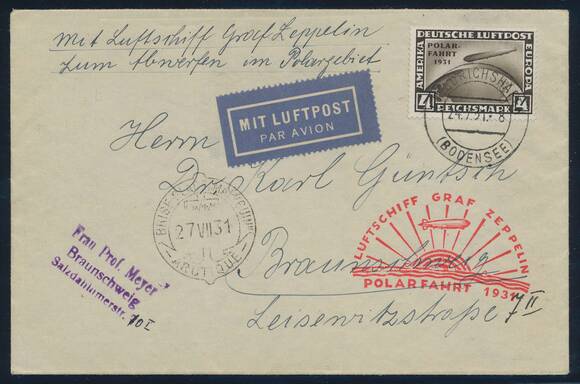 Mit Luftschiff Graf Zeppelin
zum Abwerfen im Polargebiet
DEUTSCHE LUFTPOST
POLAR-
FAHRT
1931
AMERIKA
EUROPA
4 REICHSMARK 4
FRIEDRICHSHA
24.7.31. 8
(BODENSEE)
MIT LUFTPOST
PAR AVION
Herrn
Dr. Karl Güntsch
27 VII 31
ARCTIQUE
LUFTSCHIFF GRAF ZEPPELIN
POLARFAHRT 1931
Braunschweig
Leisewitzstraße 7 II
Frau Prof. Meyer
Braunschweig
Salzdahlumerstr. 10 I